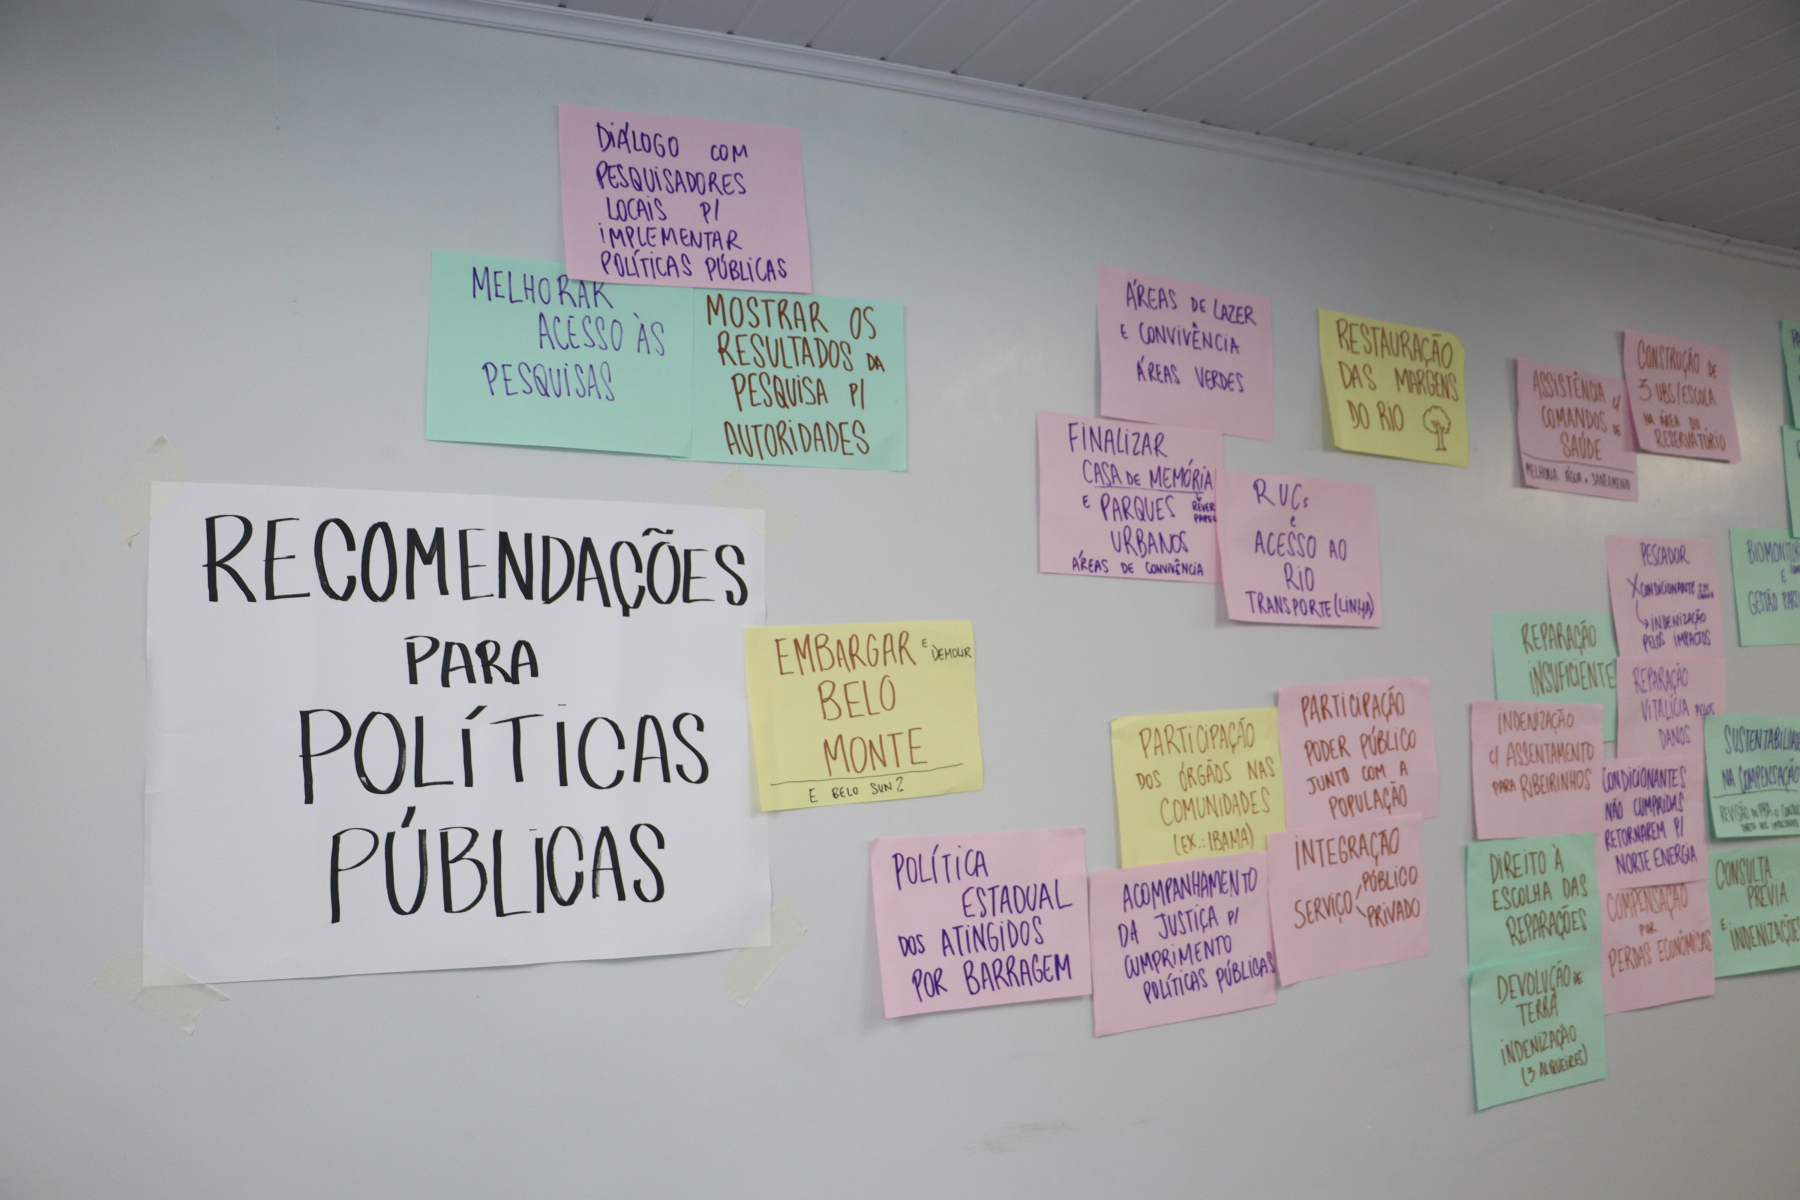 DIÁLOGO COM
PESQUISADORES
LOCAIS P/
IMPLEMENTAR
POLÍTICAS PÚBLICAS
MELHORAR
ACESSO ÀS
PESQUISAS
MOSTRAR OS
RESULTADOS DA
PESQUISA P/
AUTORIDADES
RECOMENDAÇÕES
PARA
POLÍTICAS
PÚBLICAS
EMBARGAR E DEMOLIR
BELO
MONTE
E BELO SUN?
ÁREAS DE LAZER
E CONVIVÊNCIA
ÁREAS VERDES
FINALIZAR
CASA DE MEMÓRIA
E PARQUES
URBANOS
ÁREAS DE CONVIVÊNCIA
RUCs
e
ACESSO AO
RIO
TRANSPORTE (LINHA)
RESTAURAÇÃO
DAS MARGENS
DO RIO
ASSISTÊNCIA c/
COMANDOS DE
SAÚDE
MELHORIA ÁGUA e SANEAMENTO
CONSTRUÇÃO DE
3 UBS/ESCOLA
NA ÁREA DO
RESERVATÓRIO
POLÍTICA
ESTADUAL
DOS ATINGIDOS
POR BARRAGEM
PARTICIPAÇÃO
DOS ÓRGÃOS NAS
COMUNIDADES
(EX.: IBAMA)
PARTICIPAÇÃO
PODER PÚBLICO
JUNTO COM A
POPULAÇÃO
ACOMPANHAMENTO
DA JUSTIÇA P/
CUMPRIMENTO
POLÍTICAS PÚBLICAS
INTEGRAÇÃO
SERVIÇO PÚBLICO
PRIVADO
PESCADOR
X CONDICIONANTE
INDENIZAÇÃO
PELOS IMPACTOS
REPARAÇÃO
INSUFICIENTE
REPARAÇÃO
VITALÍCIA PELOS
DANOS
INDENIZAÇÃO
c/ ASSENTAMENTO
PARA RIBEIRINHOS
CONDICIONANTES
NÃO CUMPRIDAS
RETORNAREM P/
NORTE ENERGIA
DIREITO À
ESCOLHA DAS
REPARAÇÕES
COMPENSAÇÃO
POR
PERDAS ECONÔMICAS
DEVOLUÇÃO DE
TERRA
INDENIZAÇÃO
(3 ALQUEIRES)
E
NA COMPENSAÇÃO
CONSULTA
PRÉVIA
E
INDENIZAÇÕES